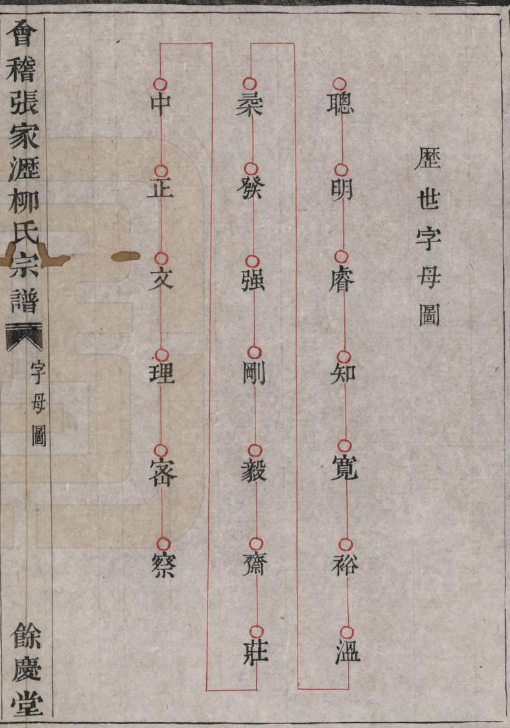 歷世字母圖
聰明睿知寬裕溫
柔發强剛毅齋莊
中正文理密察
會稽張家瀝柳氏宗譜
字母圖
餘慶堂